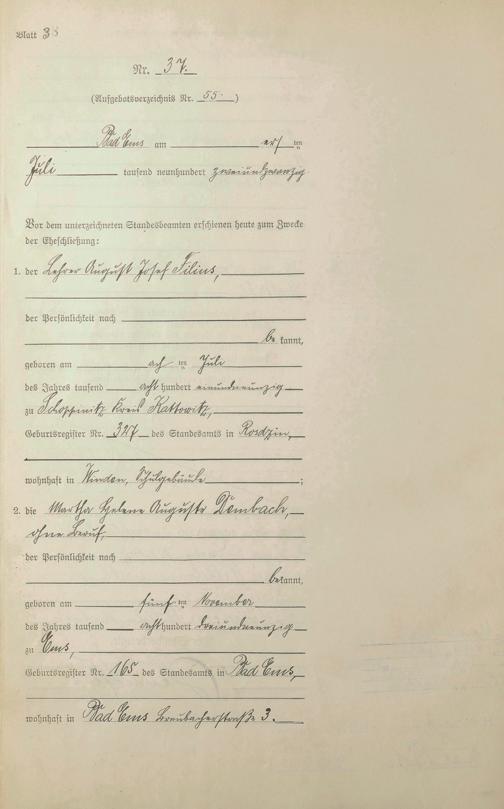 Blatt 38
Nr. 37.
(Aufgebotsverzeichnis Nr. 55.)
Bad Ems am ersten
Juli tausend neunhundert zweiundzwanzig
Vor dem unterzeichneten Standesbeamten erschienen heute zum Zwecke
der Eheschließung:
1. der Lehrer August Josef Filius,
der Persönlichkeit nach
be kannt,
geboren am achten Juli
des Jahres tausend acht hundert einundneunzig
zu Schoppinitz Kreis Kattowitz,
Geburtsregister Nr. 327 des Standesamts in Rosdzin,
wohnhaft in Winden, Schulgebäude;
2. die Martha Helene Auguste Dombach,
ohne Beruf,
der Persönlichkeit nach
bekannt,
geboren am fünften November
des Jahres tausend acht hundert dreiundneunzig
zu Ems,
Geburtsregister Nr. 165 des Standesamts in Bad Ems,
wohnhaft in Bad Ems Braubacherstraße 3.